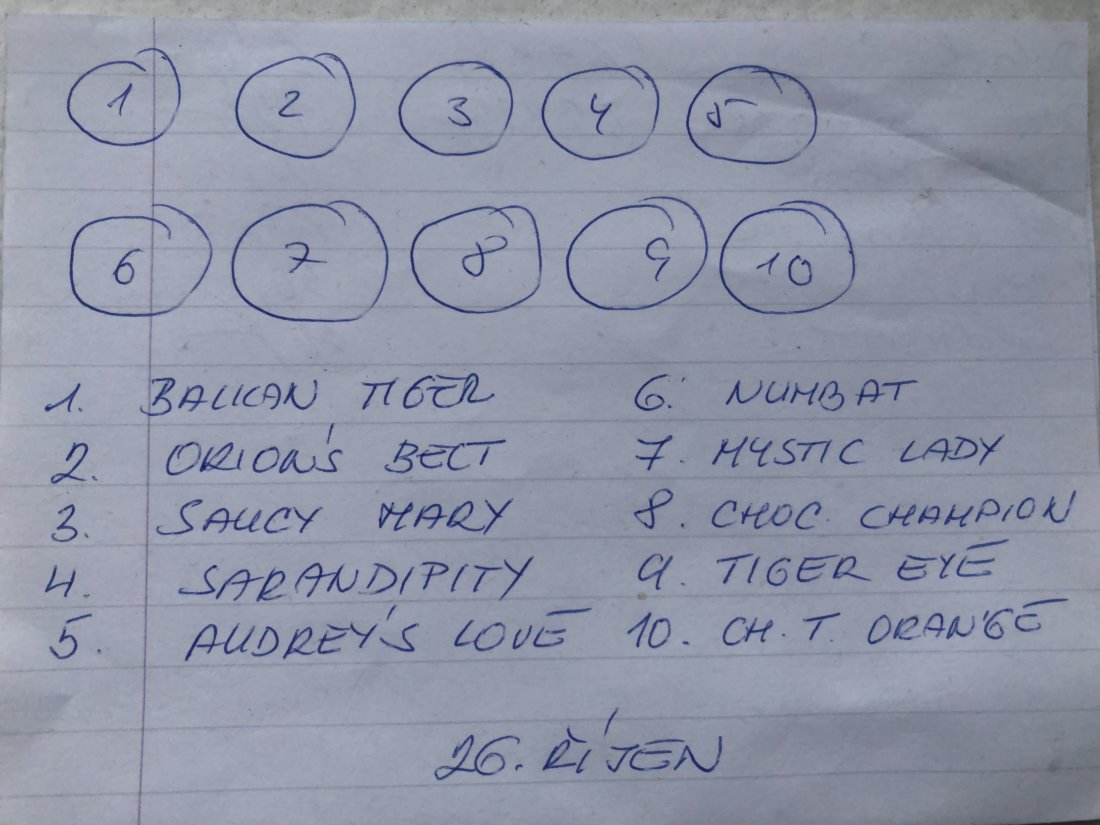 1 2 3 4 5
6 7 8 9 10
1. BALKAN TIGER
2. ORION'S BELT
3. SAUCY MARY
4. SARANDIPITY
5. AUDREY'S LOVE
6. NUMBAT
7. MYSTIC LADY
8. CHOC. CHAMPION
9. TIGER EYE
10. CH. T. ORANGE
26. ŘÍJEN